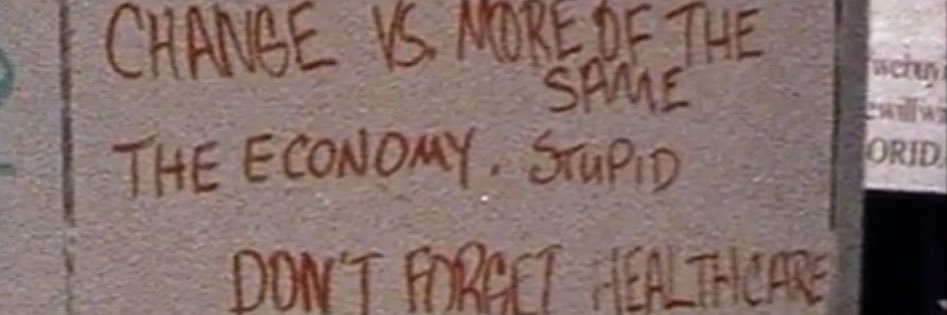 CHANGE VS. MORE OF THE
SAME
THE ECONOMY. STUPID
DON'T FORGET HEALTHCARE
ORID